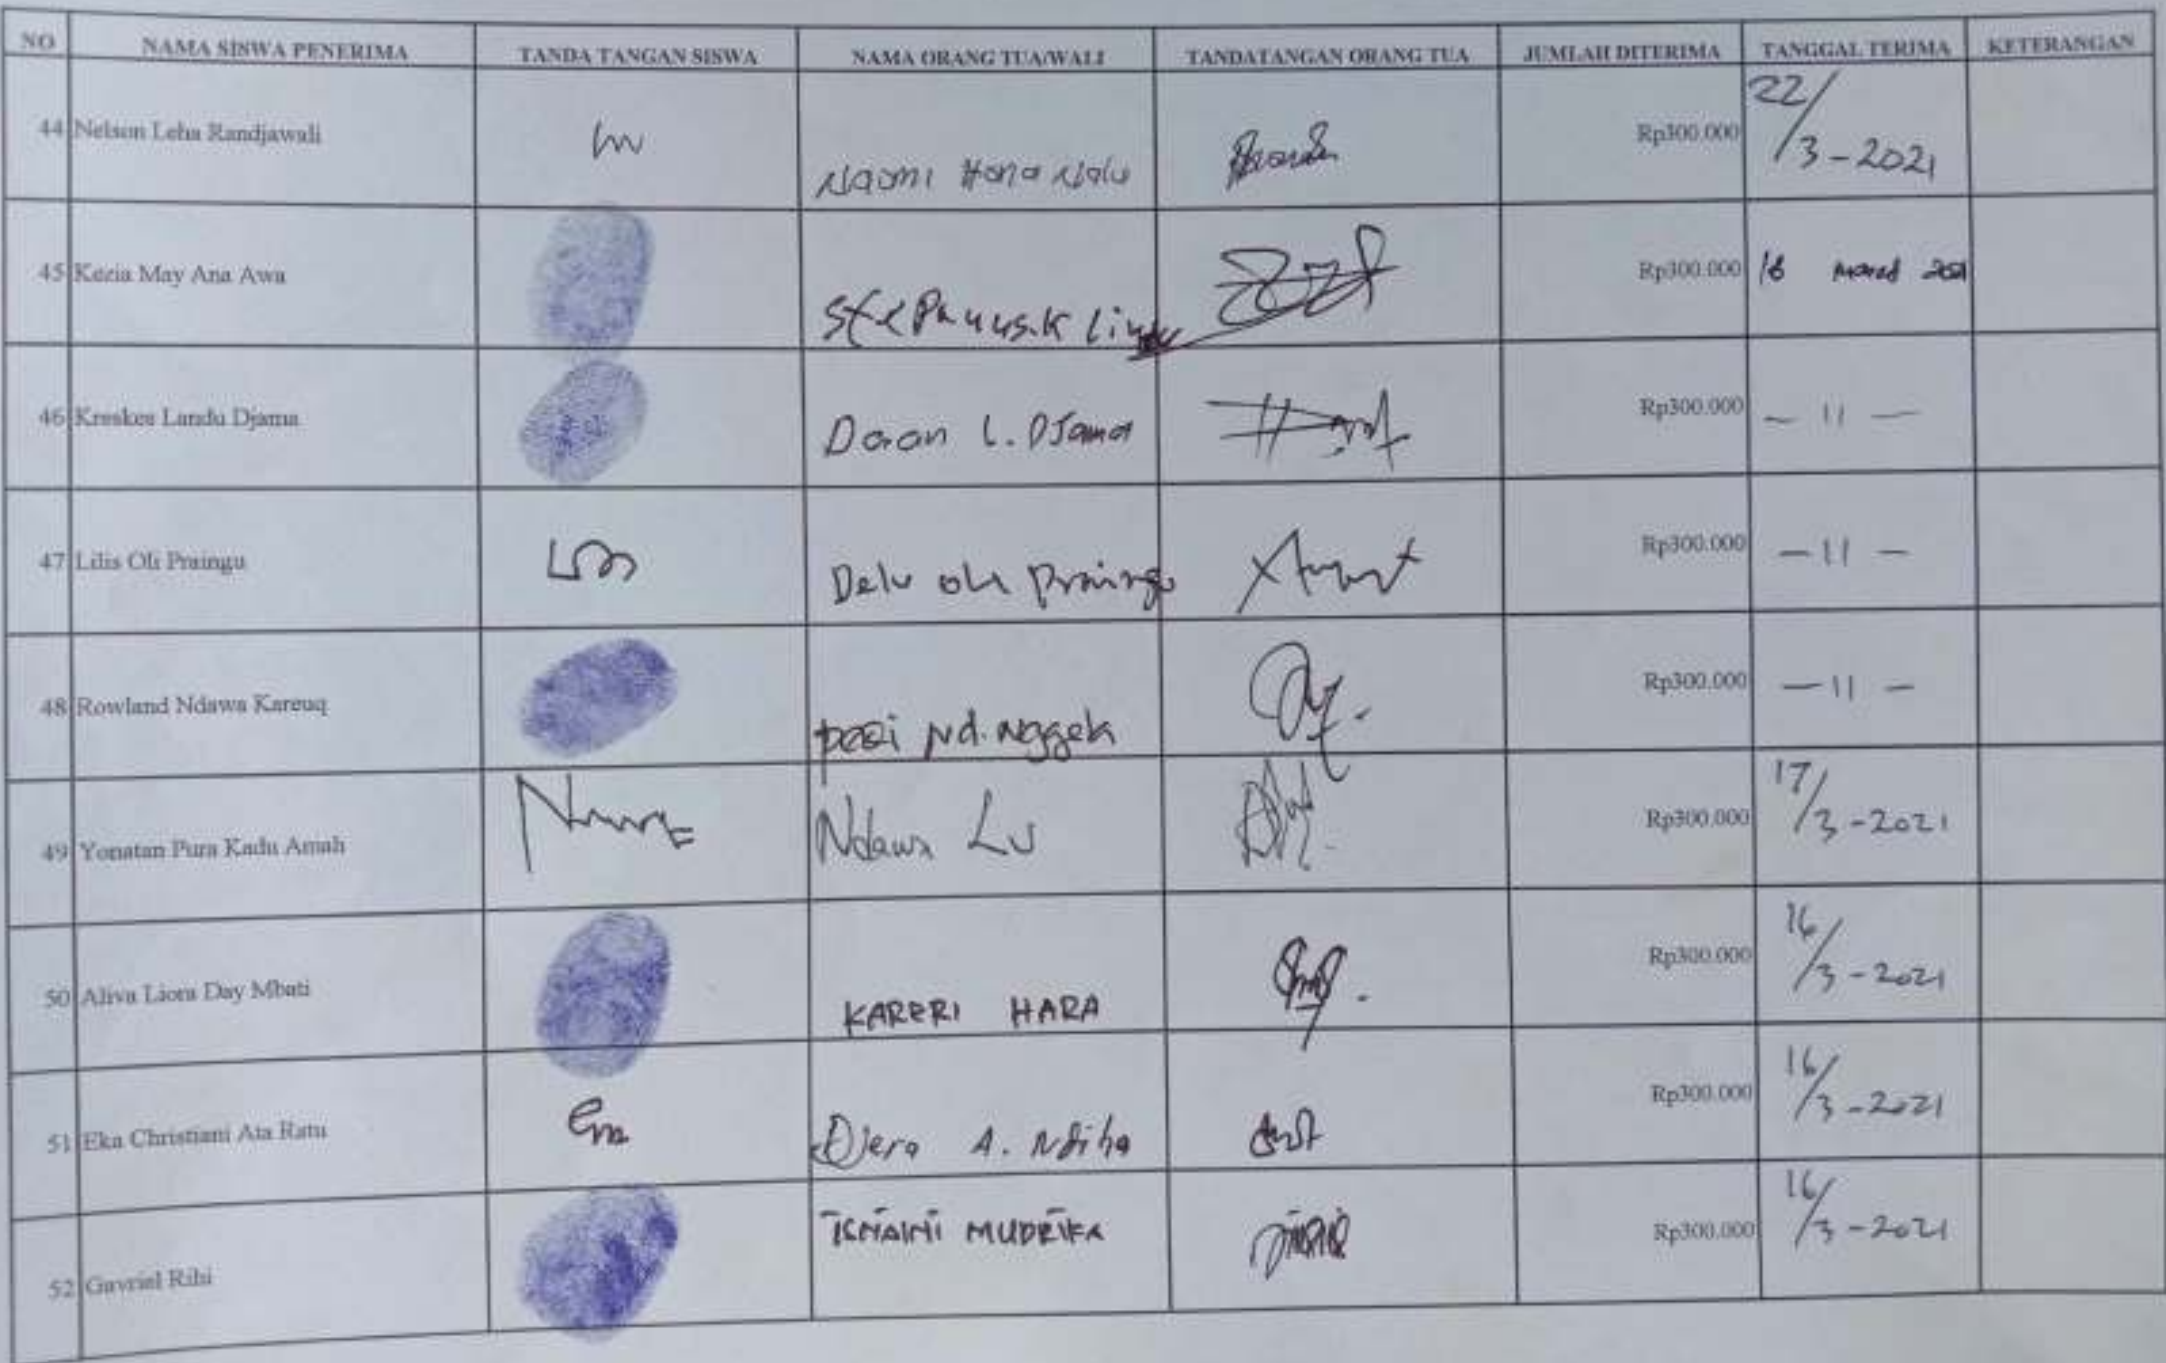 NO NAMA SISWA PENERIMA TANDA TANGAN SISWA NAMA ORANG TUA/WALI TANDATANGAN ORANG TUA JUMLAH DITERIMA TANGGAL TERIMA KETERANGAN
44 Nelson Leha Randjawali Naomi Hana Rp300.000 22/3-2021
45 Kezia May Ana Awa Rp300.000 2021
46 Landu Djama Daan L. Djama Rp300.000 - 11 -
47 Lilis Oli Praingu Delu oli praingu Rp300.000 - 11 -
48 Rowland Ndawa Kareuq Nd. Nggek Rp300.000 - 11 -
49 Yonatan Pura Kadu Amah Ndawa Lu Rp300.000 17/3-2021
50 Aliva Liora Day Mbati KARERI HARA Rp300.000 16/3-2021
51 Eka Christiani Ata Ratu Djera A. Ndiha Rp300.000 16/3-2021
52 Gavriel Rihi ISNAINI MUDRIKA Rp300.000 16/3-2021